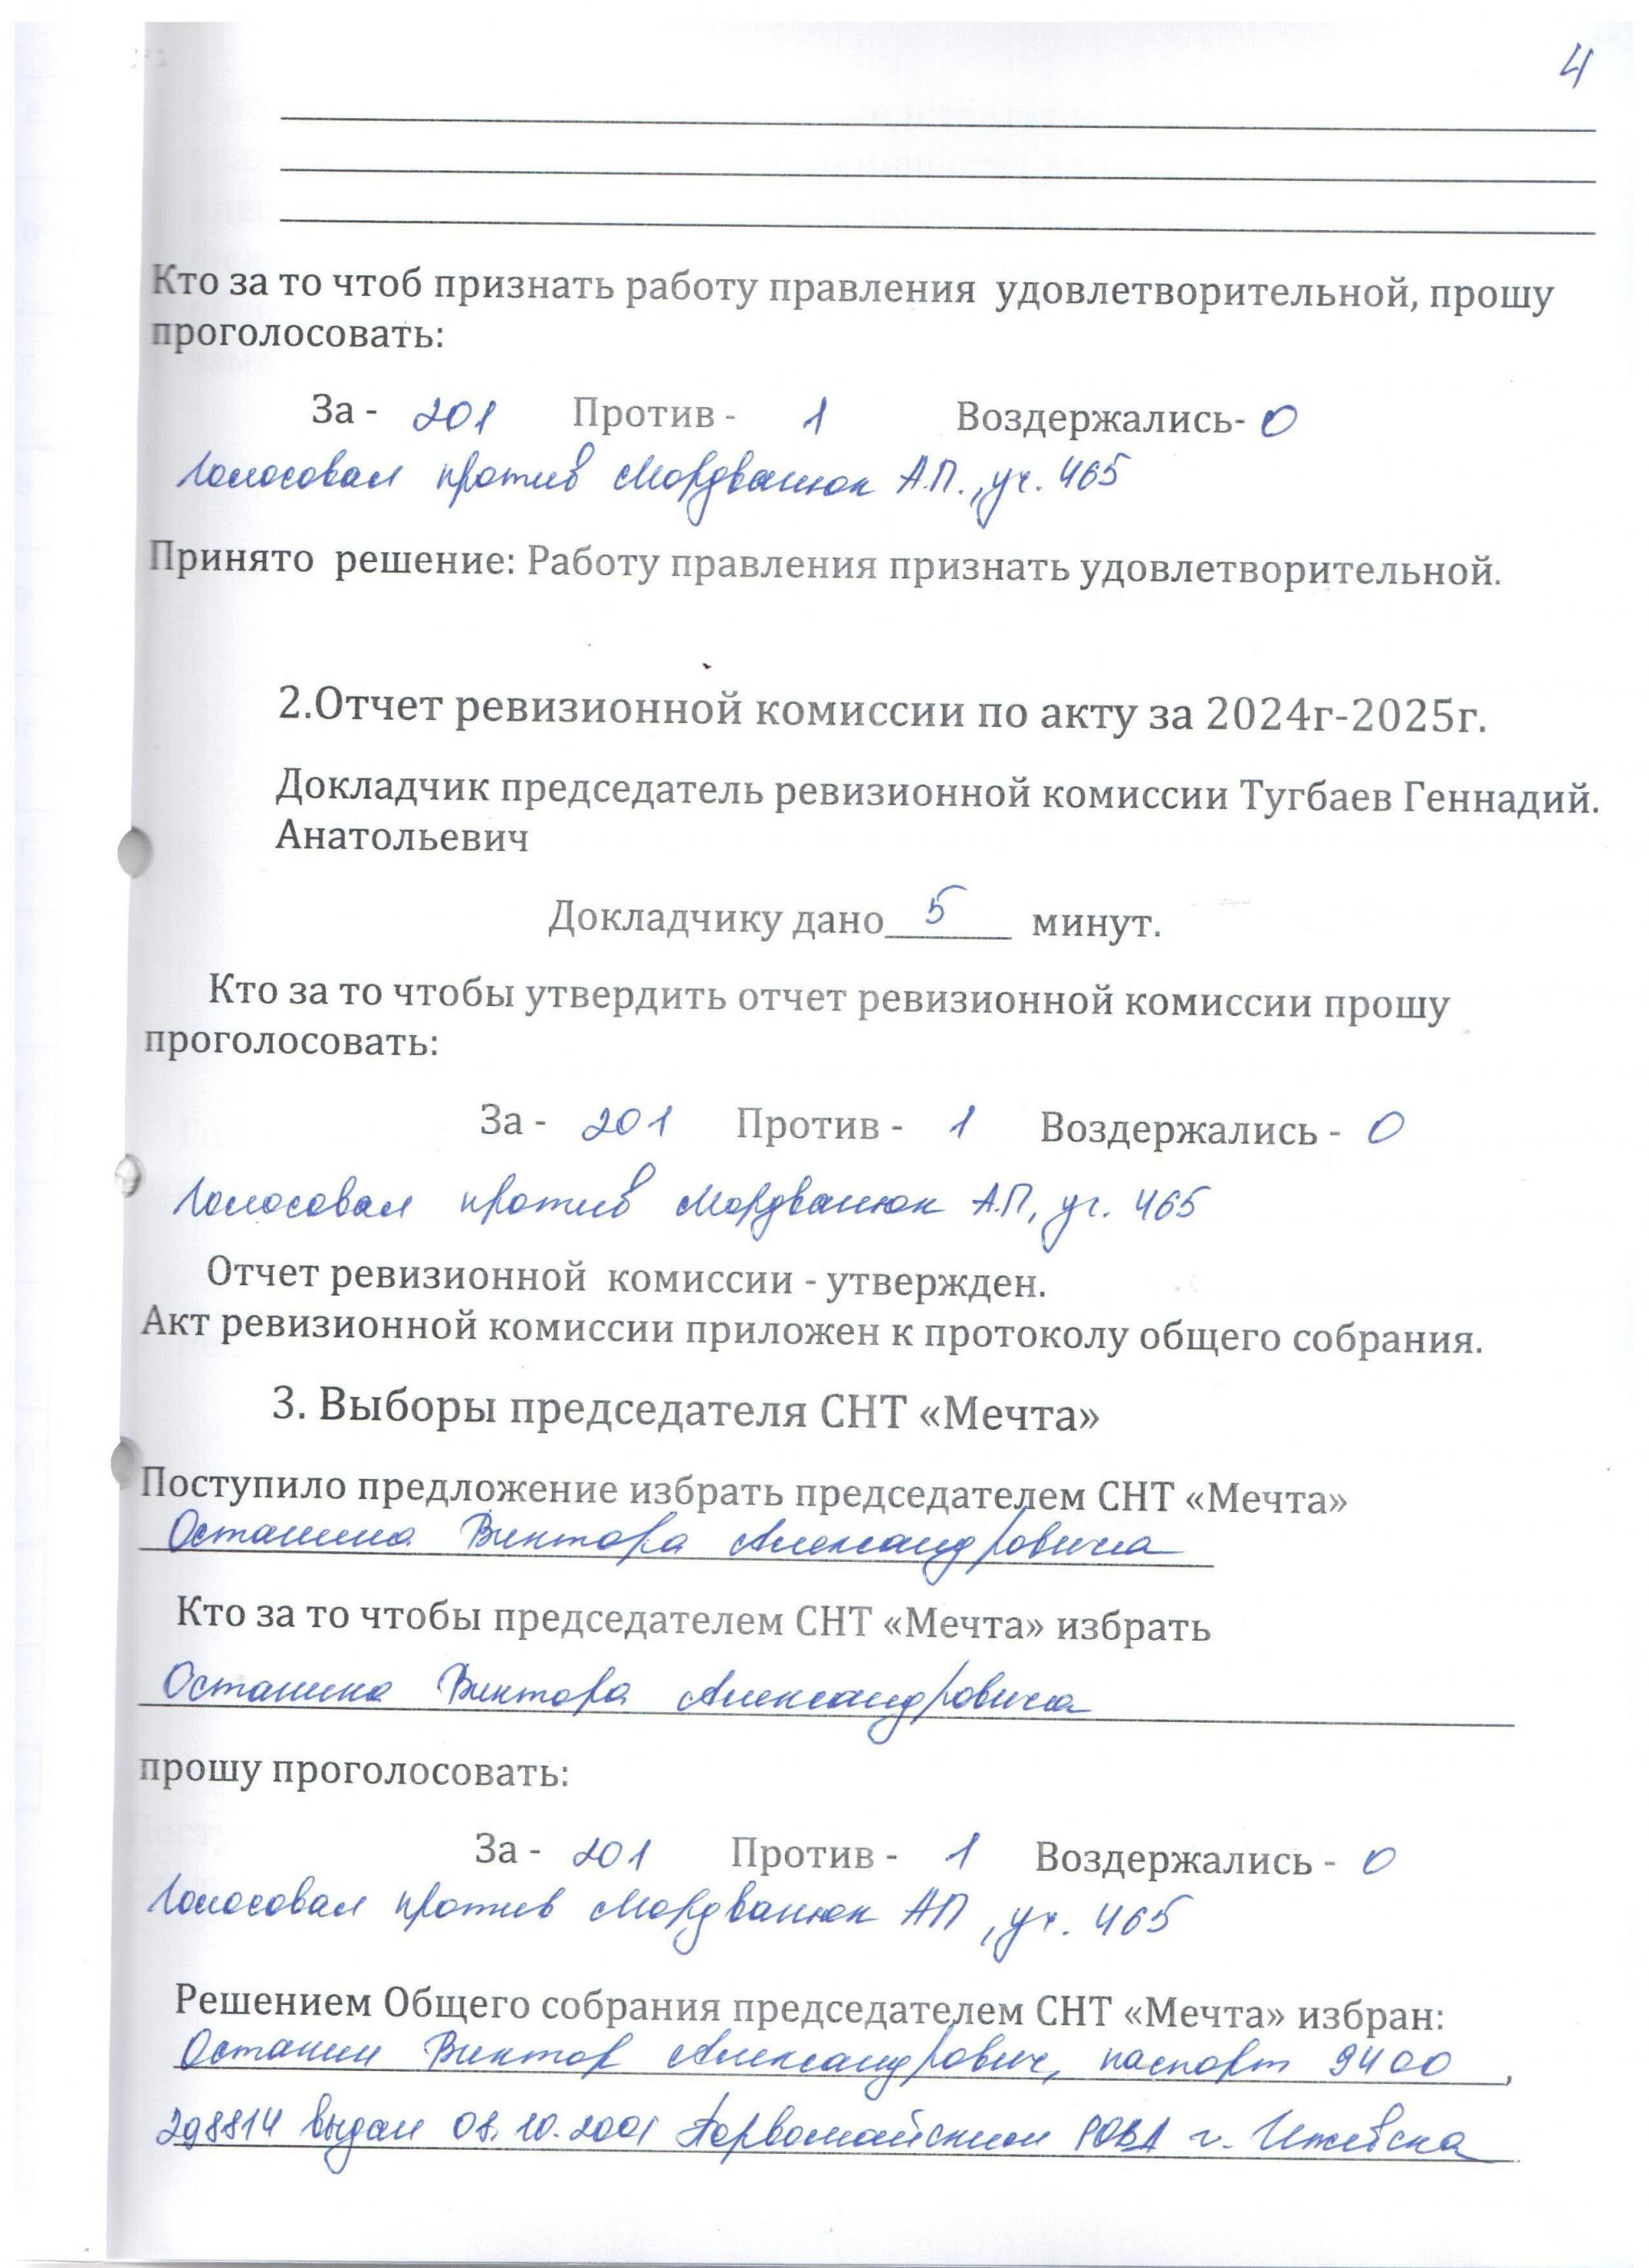 4
Кто за то чтоб признать работу правления удовлетворительной, прошу
проголосовать:
За - 201 Против - 1 Воздержались- 0
Голосовал против Мордванюк А.П., уч. 465
Принято решение: Работу правления признать удовлетворительной.
2.Отчет ревизионной комиссии по акту за 2024г-2025г.
Докладчик председатель ревизионной комиссии Тугбаев Геннадий.
Анатольевич
Докладчику дано 5 минут.
Кто за то чтобы утвердить отчет ревизионной комиссии прошу
проголосовать:
За - 201 Против - 1 Воздержались - 0
Голосовал против Мордванюк А.П, уч. 465
Отчет ревизионной комиссии - утвержден.
Акт ревизионной комиссии приложен к протоколу общего собрания.
3. Выборы председателя СНТ «Мечта»
Поступило предложение избрать председателем СНТ «Мечта»
Останина Виктора Александровича
Кто за то чтобы председателем СНТ «Мечта» избрать
Останина Виктора Александровича
прошу проголосовать:
За - 201 Против - 1 Воздержались - 0
Голосовал против Мордванюк АП, уч. 465
Решением Общего собрания председателем СНТ «Мечта» избран:
Останин Виктор Александрович, паспорт 9400,
298814 выдан 08.10.2001 Первомайским РОВД г. Ижевска